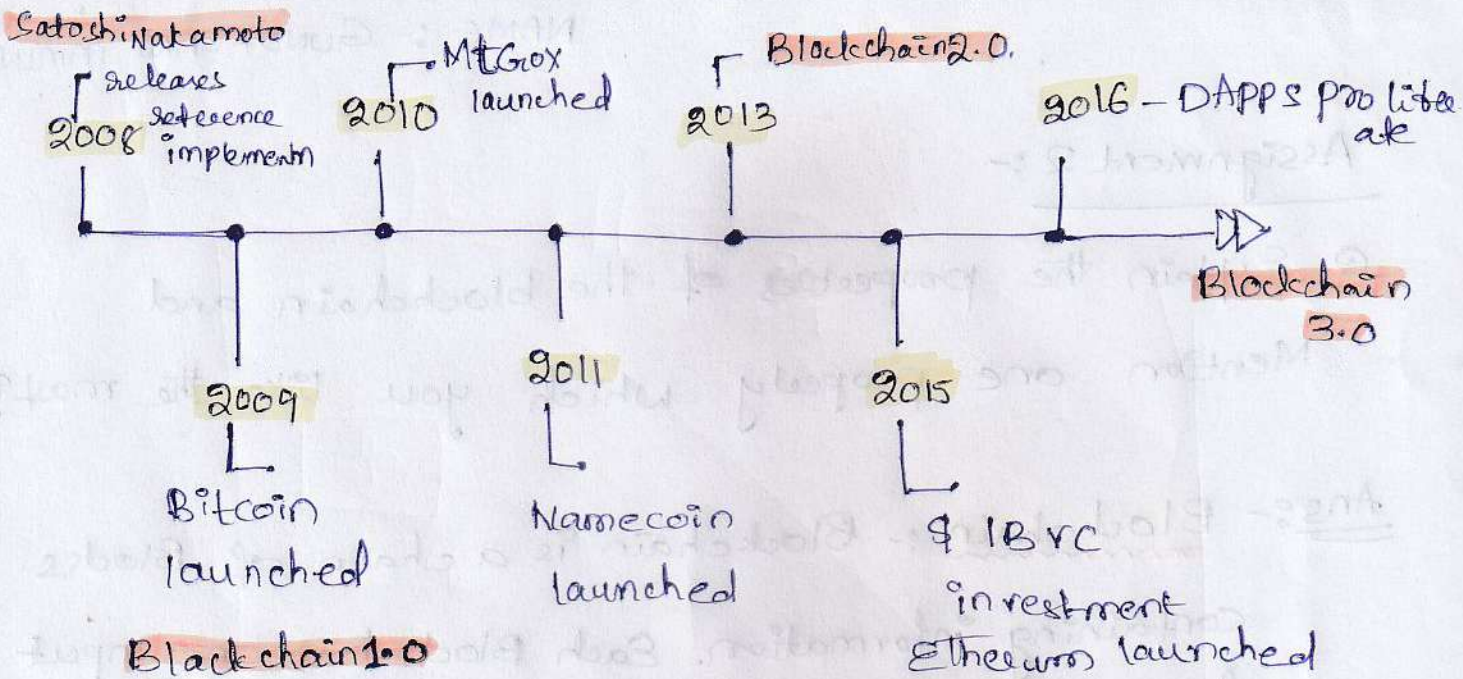 Satoshi Nakamoto
releases
reference
implementn
2008
MtGox
launched
2010
Blockchain2.0.
2013
2016 - DAPPS prolifer
ate
Blockchain
3.0
2009
Bitcoin
launched
Blackchain1.0
2011
Namecoin
launched
2015
$ 1B VC
investment
Ethereum launched